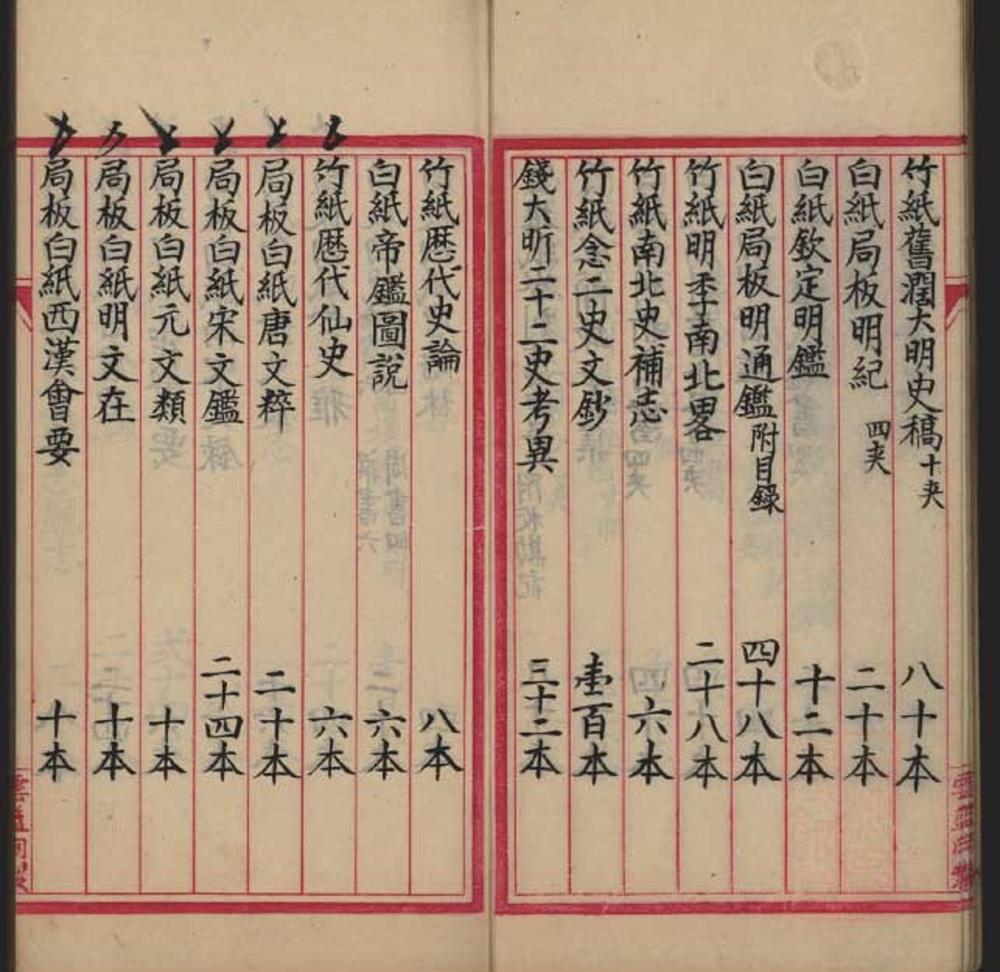 竹紙舊濶大明史稿 十夾 八十本
白紙局板明紀 四夾 二十本
白紙欽定明鑑 十二本
白紙局板明通鑑 附目録 四十八本
竹紙明季南北畧 二十八本
竹紙南北史補志 六本
竹紙念二史文鈔 壹百本
錢大昕二十二史考異 三十二本
竹紙歷代史論 八本
白紙帝鑑圖説 六本
竹紙歷代仙史 六本
局板白紙唐文粹 二十本
局板白紙宋文鑑 二十四本
局板白紙元文類 十本
局板白紙明文在 十本
局板白紙西漢會要 十本